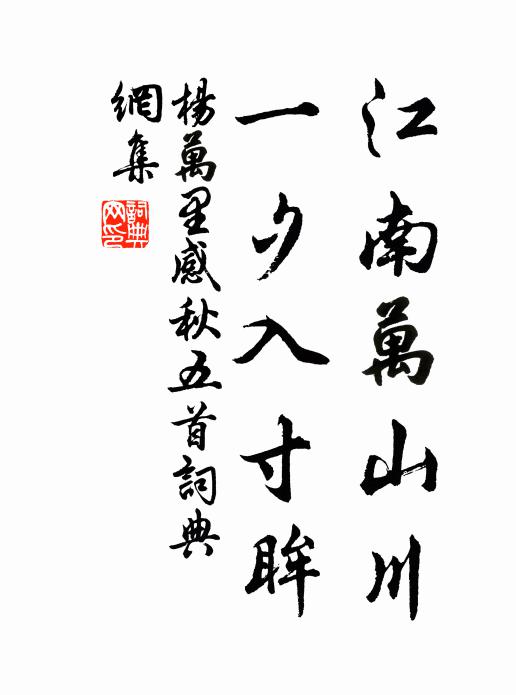 江南萬山川
一夕入寸眸
楊萬里感秋五首詞典
網集
詞典
网印